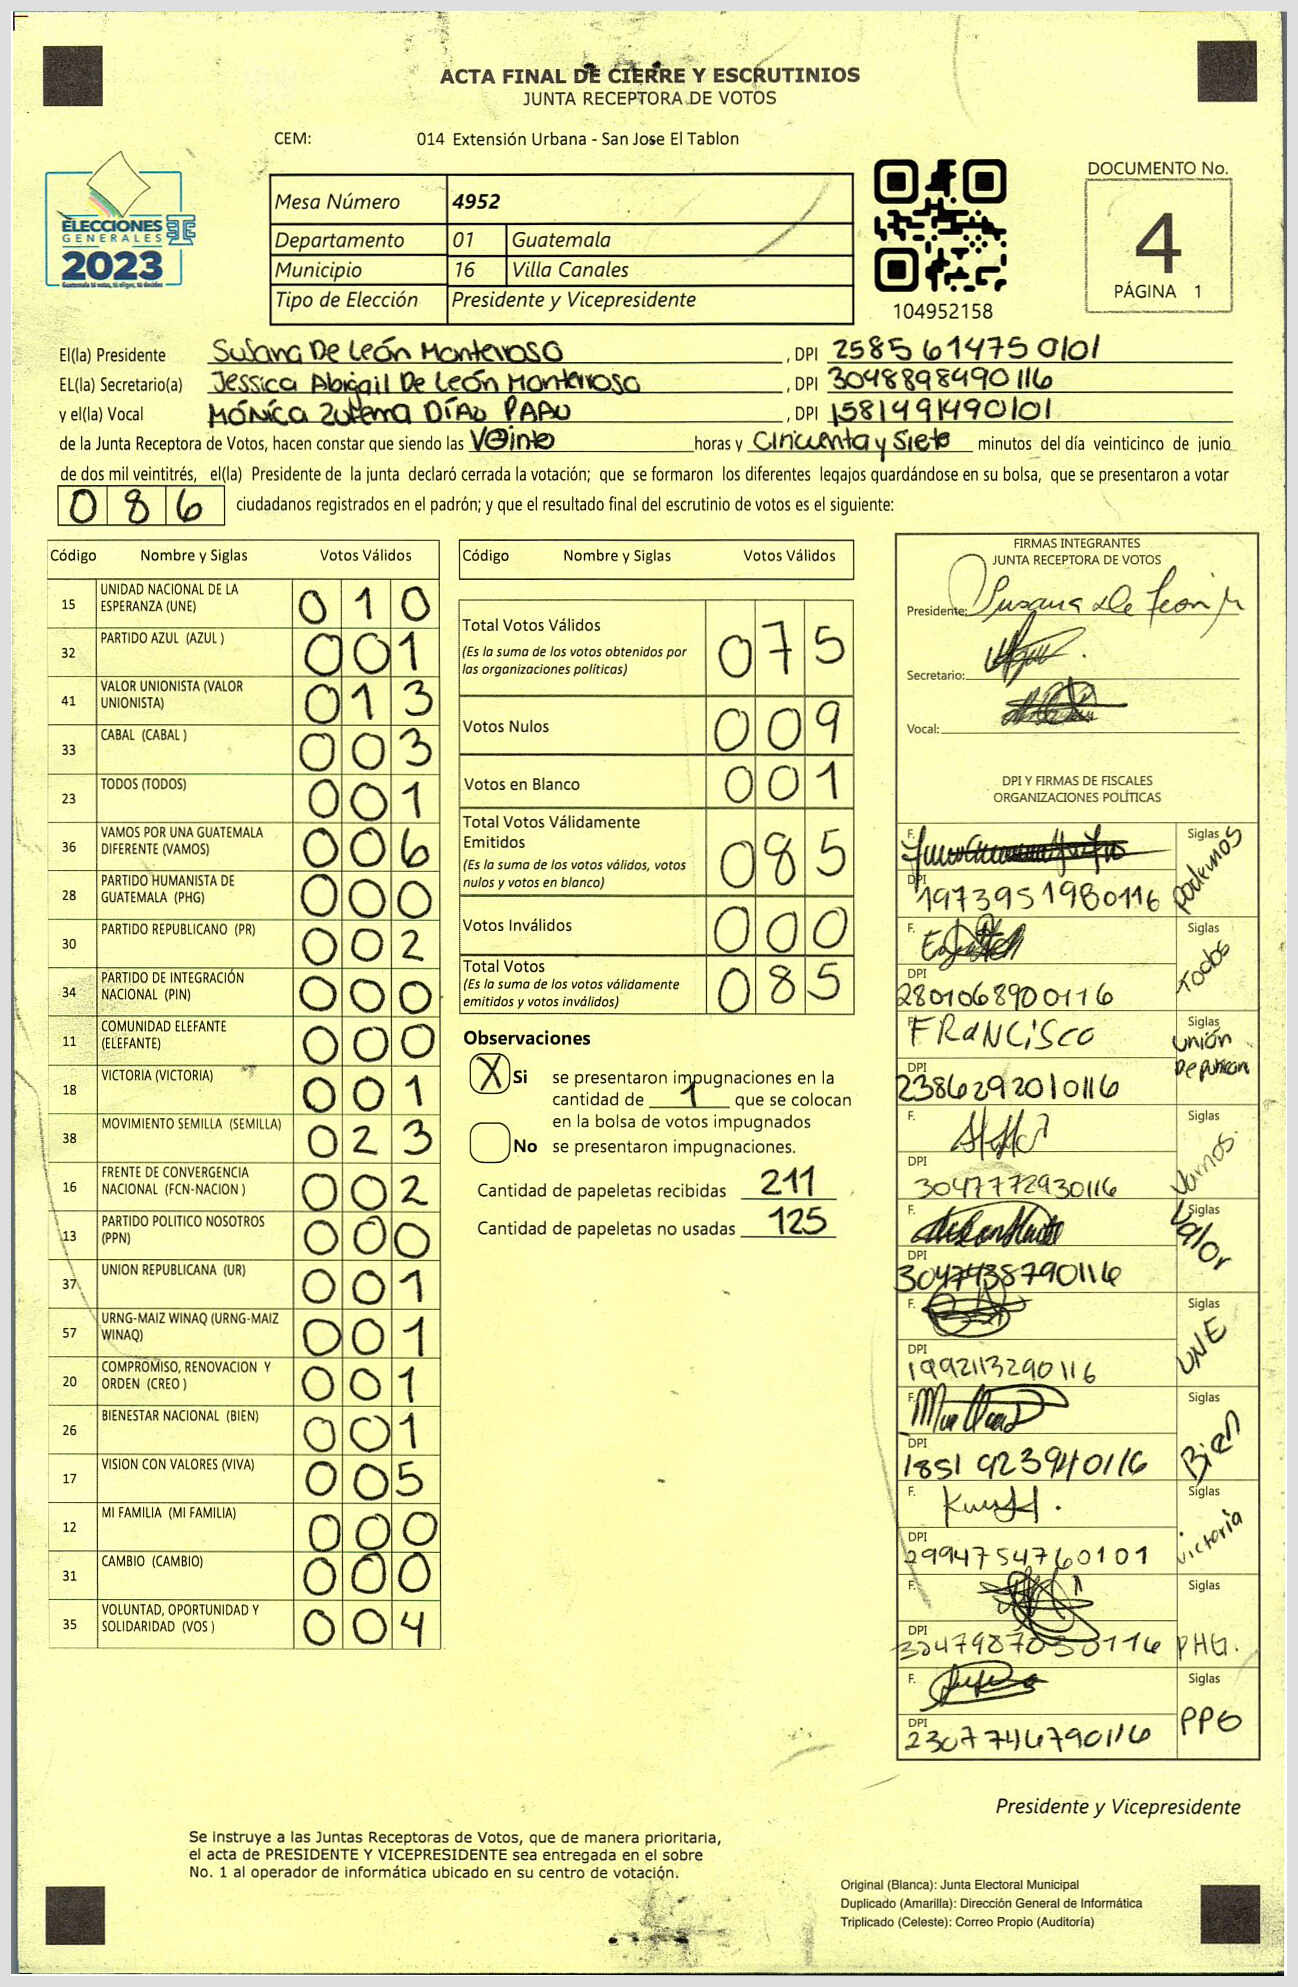 ACTA FINAL DE CIERRE Y ESCRUTINIOS
JUNTA RECEPTORA DE VOTOS
CEM: 014 Extensión Urbana - San Jose El Tablon
ELECCIONES
GENERALES
2023
Guatemala tú votas, tú eliges, tú decides
Mesa Número 4952
Departamento 01 Guatemala
Municipio 16 Villa Canales
Tipo de Elección Presidente y Vicepresidente
104952158
DOCUMENTO No.
4
PÁGINA 1
El(la) Presidente Susana De León Monterroso, DPI 2585614750101
EL(la) Secretario(a) Jessica Abigail De León Monterroso, DPI 3048898490116
y el(la) Vocal MÓNICA Zulema DÍAZ, DPI 1581491490101
de la Junta Receptora de Votos, hacen constar que siendo las Veinte horas y Cincuenta y Siete minutos del día veinticinco de junio
de dos mil veintitrés, el(la) Presidente de la junta declaró cerrada la votación; que se formaron los diferentes legajos guardándose en su bolsa, que se presentaron a votar
086 ciudadanos registrados en el padrón; y que el resultado final del escrutinio de votos es el siguiente:
Código Nombre y Siglas Votos Válidos
15 UNIDAD NACIONAL DE LA ESPERANZA (UNE) 010
32 PARTIDO AZUL (AZUL ) 001
41 VALOR UNIONISTA (VALOR UNIONISTA) 013
33 CABAL (CABAL ) 003
23 TODOS (TODOS) 001
36 VAMOS POR UNA GUATEMALA DIFERENTE (VAMOS) 006
28 PARTIDO HUMANISTA DE GUATEMALA (PHG) 000
30 PARTIDO REPUBLICANO (PR) 002
34 PARTIDO DE INTEGRACIÓN NACIONAL (PIN) 000
11 COMUNIDAD ELEFANTE (ELEFANTE) 000
18 VICTORIA (VICTORIA) 001
38 MOVIMIENTO SEMILLA (SEMILLA) 023
16 FRENTE DE CONVERGENCIA NACIONAL (FCN-NACION ) 002
13 PARTIDO POLITICO NOSOTROS (PPN) 000
37 UNION REPUBLICANA (UR) 001
57 URNG-MAIZ WINAQ (URNG-MAIZ WINAQ) 001
20 COMPROMISO, RENOVACION Y ORDEN (CREO ) 001
26 BIENESTAR NACIONAL (BIEN) 001
17 VISION CON VALORES (VIVA) 005
12 MI FAMILIA (MI FAMILIA) 000
31 CAMBIO (CAMBIO) 000
35 VOLUNTAD, OPORTUNIDAD Y SOLIDARIDAD (VOS ) 004
Código Nombre y Siglas Votos Válidos
Total Votos Válidos 075
(Es la suma de los votos obtenidos por
las organizaciones políticas)
Votos Nulos 009
Votos en Blanco 001
Total Votos Válidamente
Emitidos 085
(Es la suma de los votos válidos, votos
nulos y votos en blanco)
Votos Inválidos 000
Total Votos 085
(Es la suma de los votos válidamente
emitidos y votos inválidos)
Observaciones
X Si se presentaron impugnaciones en la
cantidad de 1 que se colocan
en la bolsa de votos impugnados
No se presentaron impugnaciones.
Cantidad de papeletas recibidas 211
Cantidad de papeletas no usadas 125
FIRMAS INTEGRANTES
JUNTA RECEPTORA DE VOTOS
Presidente: Susana de León M
Secretario:
Vocal:
DPI Y FIRMAS DE FISCALES
ORGANIZACIONES POLÍTICAS
F. Siglas Podemos
DPI 1973951980116
F. Siglas Todos
DPI 2801068900116
F. FRANCISCO Siglas Unión Republican
DPI 2386292010116
F. Siglas Vamos
DPI 3047772930116
F. Siglas Valor
DPI 3047438790116
F. Siglas UNE
DPI 1992113290116
F. Siglas Bien
DPI 1851923940116
F. Siglas Victoria
DPI 2994754760101
F. Siglas PHG.
DPI
F. Siglas PPG
DPI 2307746790116
Presidente y Vicepresidente
Se instruye a las Juntas Receptoras de Votos, que de manera prioritaria,
el acta de PRESIDENTE Y VICEPRESIDENTE sea entregada en el sobre
No. 1 al operador de informática ubicado en su centro de votación.
Original (Blanca): Junta Electoral Municipal
Duplicado (Amarilla): Dirección General de Informática
Triplicado (Celeste): Correo Propio (Auditoría)